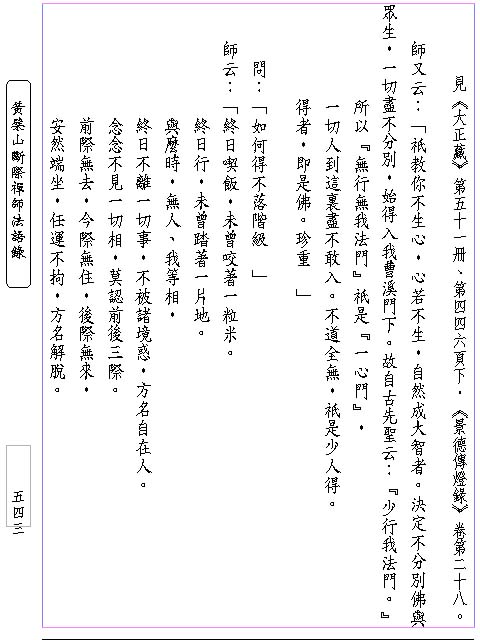 見《大正藏》第五十一冊、第四四六頁下.《景德傳燈錄》卷第二十八。
師又云：「祇教你不生心，心若不生，自然成大智者。決定不分別佛與
眾生，一切盡不分別，始得入我曹溪門下。故自古先聖云：『少行我法門。』
所以『無行無我法門』祇是『一心門』，
一切人到這裏盡不敢入。不道全無，祇是少人得。
得者，即是佛。珍重」
問：「如何得不落階級」
師云：「終日喫飯，未曾咬著一粒米。
終日行，未曾踏著一片地。
與麼時，無人、我等相，
終日不離一切事，不被諸境惑，方名自在人。
念念不見一切相，莫認前後三際。
前際無去，今際無住，後際無來，
安然端坐，任運不拘，方名解脫。
黃檗山斷際禪師法語錄
五四三